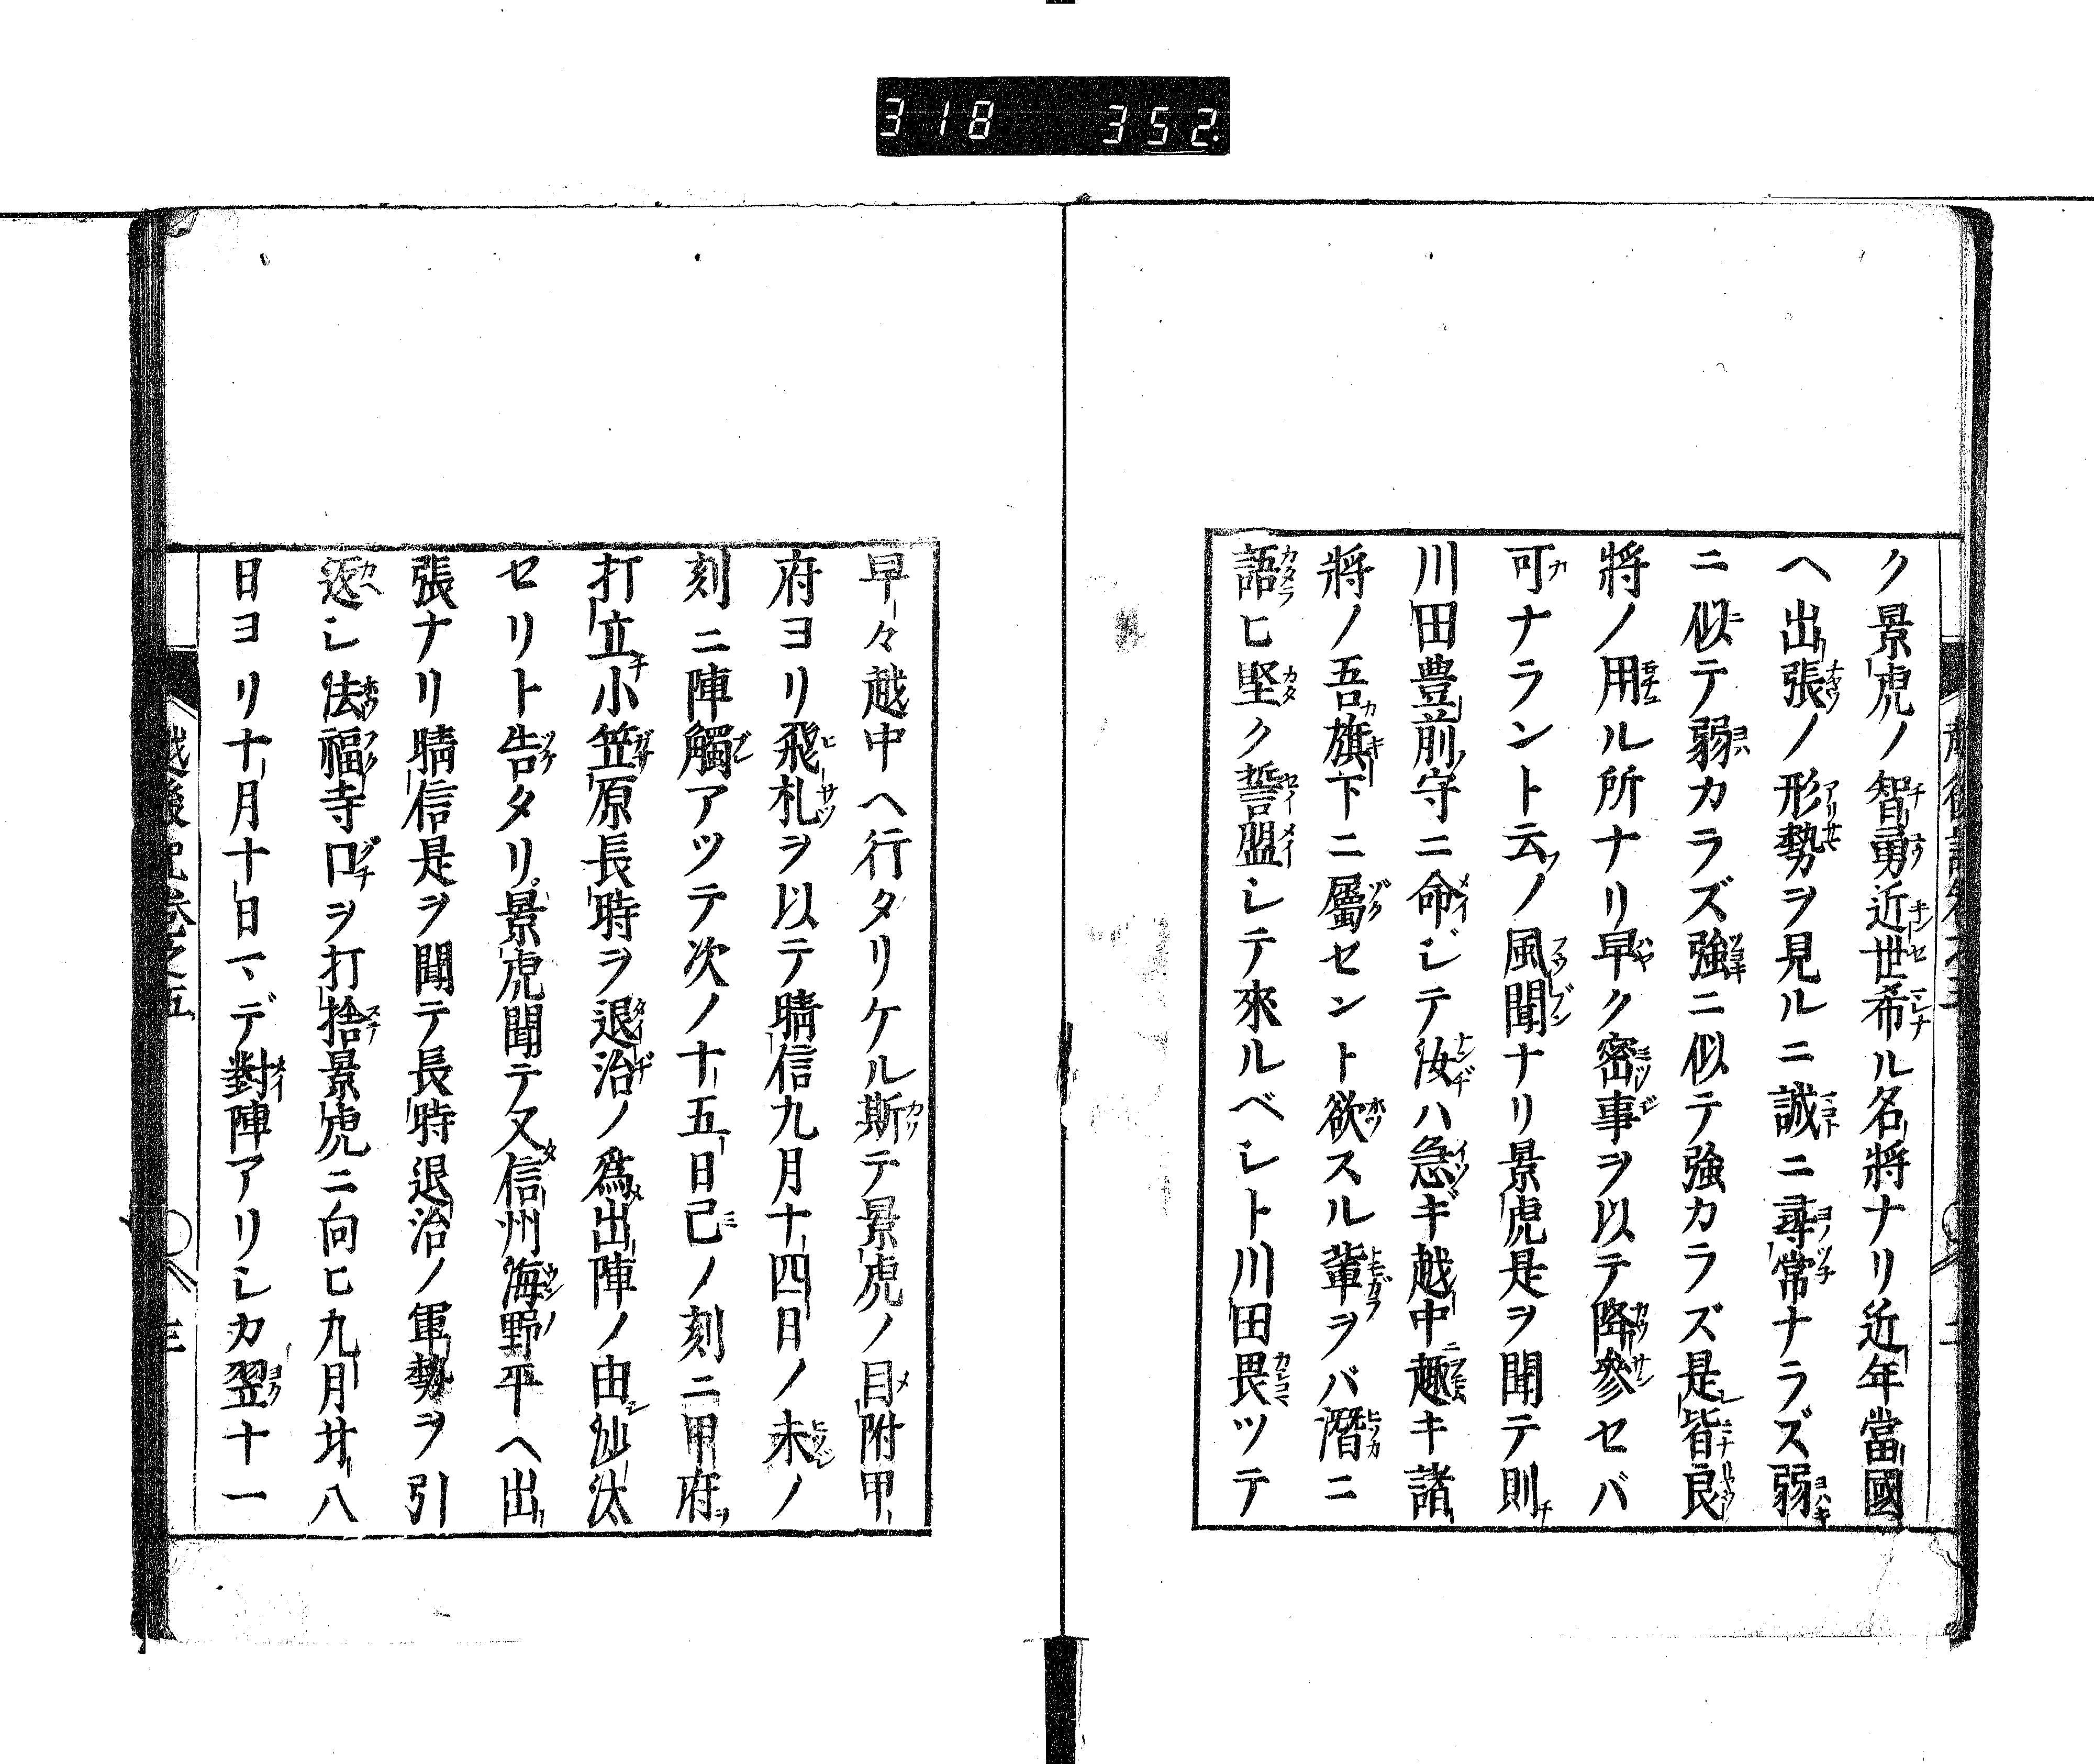 318 352
ク景虎ノ智勇近世希ル名將ナリ近年當國
ヘ出張ノ形勢ヲ見ルニ誠ニ尋常ナラズ弱
ニ似テ弱カラズ強ニ似テ強カラズ是皆良
將ノ用ル所ナリ早ク密事ヲ以テ降參セバ
可ナラント云ノ風聞ナリ景虎是ヲ聞テ則
川田豊前守ニ命ジテ汝ハ急ギ越中趣キ諸
將ノ吾旗下ニ屬セント欲スル輩ヲバ潛ニ
語ヒ堅ク誓盟シテ來ルベシト川田畏ツテ
早々越中ヘ行タリケル斯テ景虎ノ目附甲
府ヨリ飛札ヲ以テ晴信九月十四日ノ未ノ
刻ニ陣觸アツテ次ノ十五日己ノ刻ニ甲府
打立小笠原長時ヲ退治ノ爲出陣ノ由沙汰
セリト告タリ。景虎聞テ又信州海野平ヘ出
張ナリ晴信是ヲ聞テ長時退治ノ軍勢ヲ引
返シ法福寺口ヲ打捨景虎ニ向ヒ九月廿八
日ヨリ十月十日マデ對陣アリシカ翌十一
越後記巻之五
三